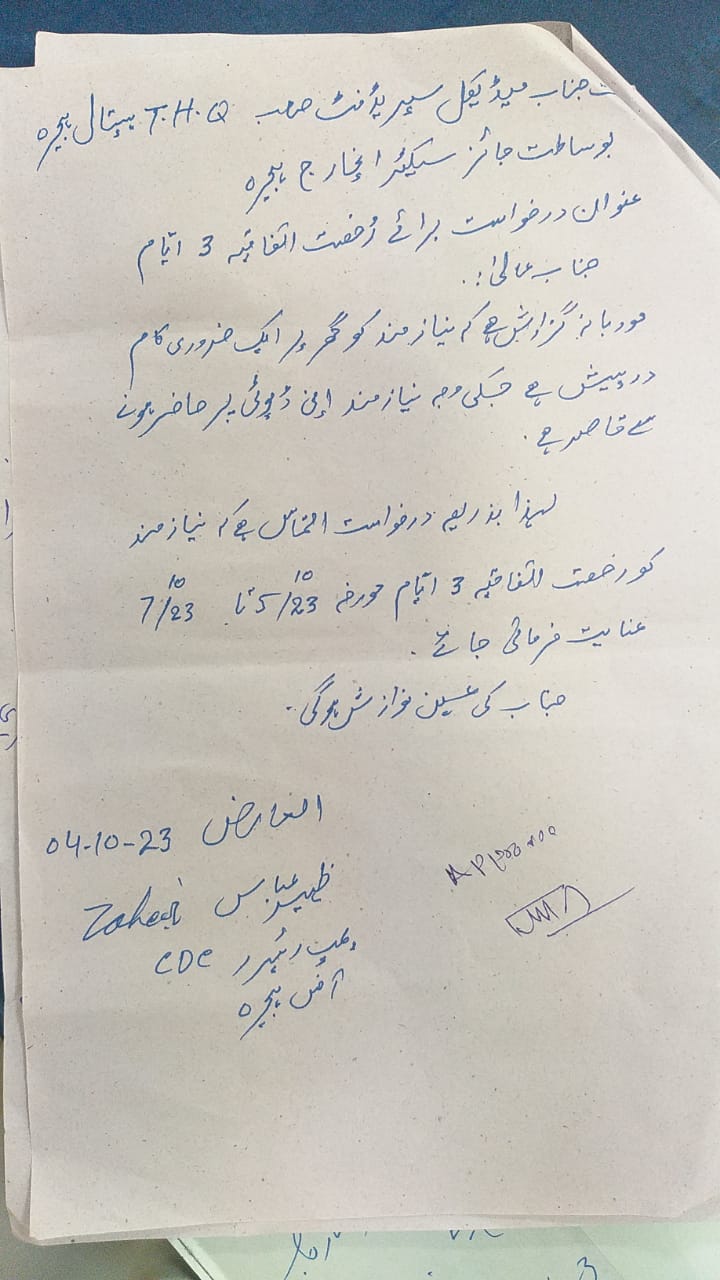 ت جناب میڈیکل سپریڈنٹ صاحب T.H.Q ہسپتال ہجیرہ
بوساطت جائز سیکٹر انچارج ہجیرہ
عنوان درخواست برائے رُخصت اتفاقیہ 3 ایّام
جناب عالیٰ:۔
مودبانہ گزارش ہے کہ نیازمند کو گھر پر ایک ضروری کام
درپیش ہے جسکی وجہ نیازمند اپنی ڈیوٹی پر حاضر ہونے
سے قاصر ہے۔
لہذا بذریعہ درخواست التماس ہے کہ نیازمند
کو رخصت اتفاقیہ 3 ایّام مورخہ 5/10/23 تا 7/10/23
عنایت فرمائی جائے۔
جناب کی عین نوازش ہوگی۔
العارض 04-10-23
ظہیر عباس Zaheer
CDC
آفس ہجیرہ